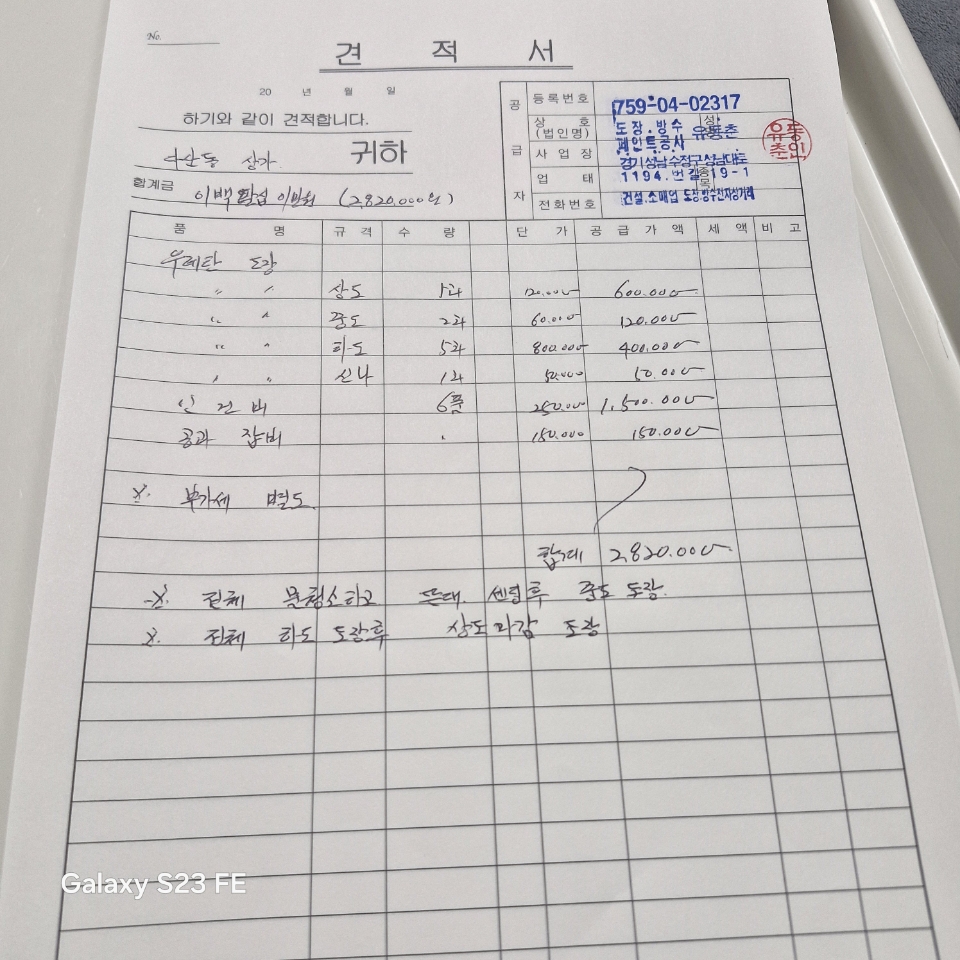 No.
견 적 서
20 년 월 일
하기와 같이 견적합니다.
상가 귀하
합계금 이백팔십이만원 (2,820,000원)
공급자
등록번호 759-04-02317
상호 (법인명) 도장.방수 페인트공사 성명 유동춘
유동춘인
사업장 경기성남수정구성남대로 1194.번길 19-1
업태 건설.소매업 종목 도장.방수전자상거래
전화번호
품 명 규 격 수 량 단 가 공 급 가 액 세 액 비 고
우레탄 도장
〃 〃 상도 5과 120.000 600.000
〃 〃 중도 2과 60.000 120.000
〃 〃 하도 5과 800.000 400.000
〃 〃 신나 1과 50.000 50.000
인건비 6품 250.000 1,500.000
공과 잡비 150.000 150.000
※. 부가세 별도.
합계 2,820.000
※. 전체 물청소하고 후 중도 도장.
※. 전체 하도 도장후 상도마감 도장
Galaxy S23 FE